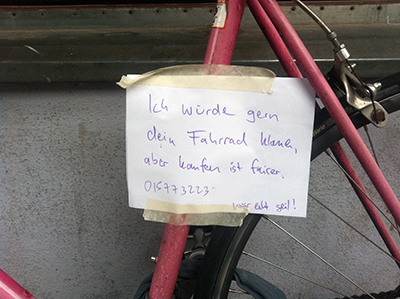 Ich würde gern
dein Fahrrad klauen,
aber kaufen ist fairer.
015773223
wär echt geil!